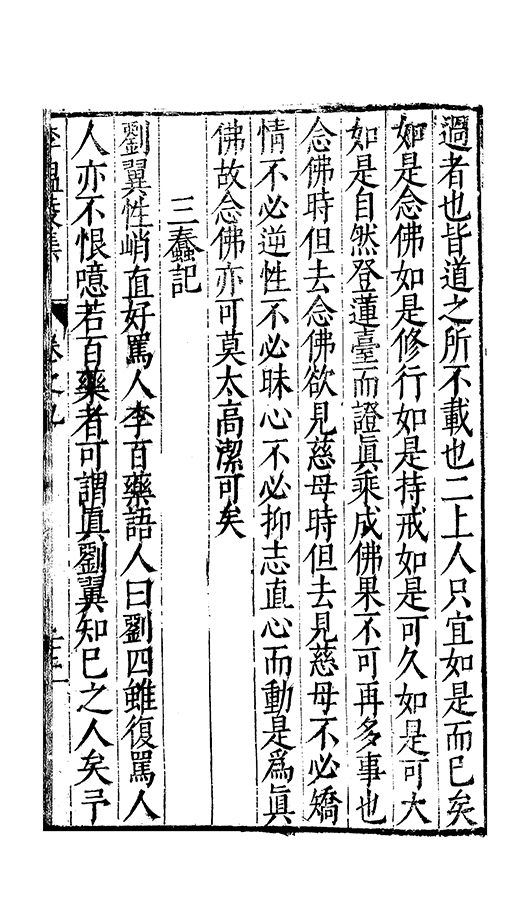 過者也皆道之所不載也二上人只宜如是而已矣
如是念佛如是修行如是持戒如是可久如是可大
如是自然登蓮臺而證眞乘成佛果不可再多事也
念佛時但去念佛欲見慈母時但去見慈母不必矯
情不必逆性不必昧心不必抑志直心而動是爲眞
佛故念佛亦可莫太高潔可矣
三蠢記
劉翼性峭直好罵人李百藥語人曰劉四雖復罵人
人亦不恨噫若百藥者可謂眞劉翼知巳之人矣予
李溫陵集
卷之九